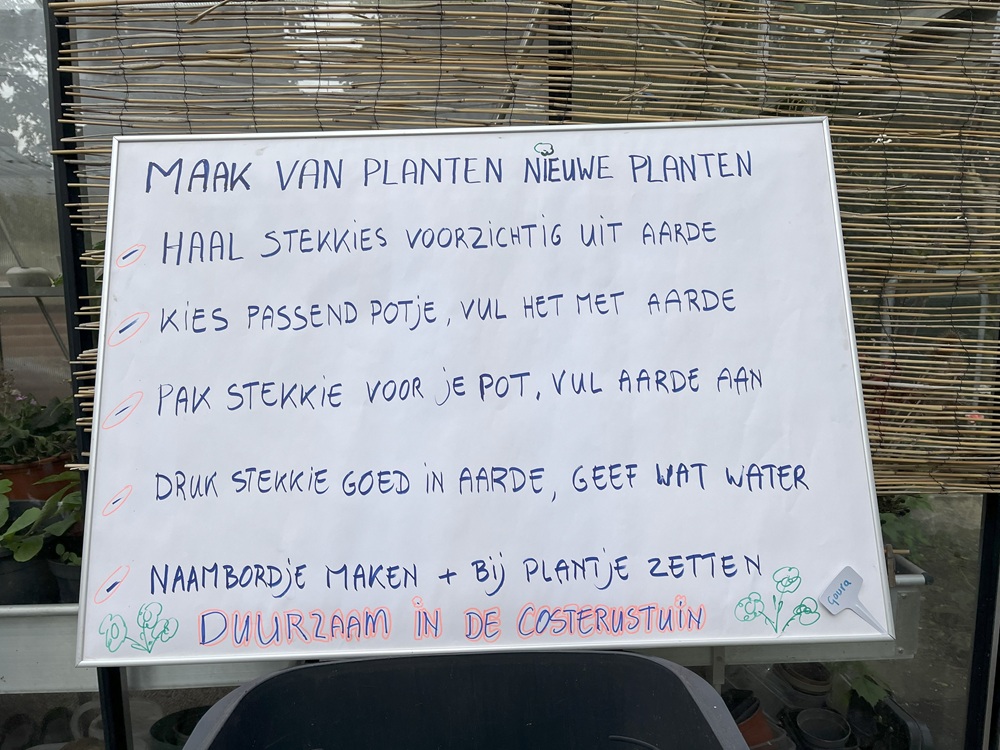 MAAK VAN PLANTEN NIEUWE PLANTEN
- HAAL STEKKIES VOORZICHTIG UIT AARDE
- KIES PASSEND POTJE, VUL HET MET AARDE
- PAK STEKKIE VOOR JE POT, VUL AARDE AAN
- DRUK STEKKIE GOED IN AARDE, GEEF WAT WATER
- NAAMBORDJE MAKEN + BIJ PLANTJE ZETTEN
DUURZAAM IN DE COSTERUSTUIN
Gaura